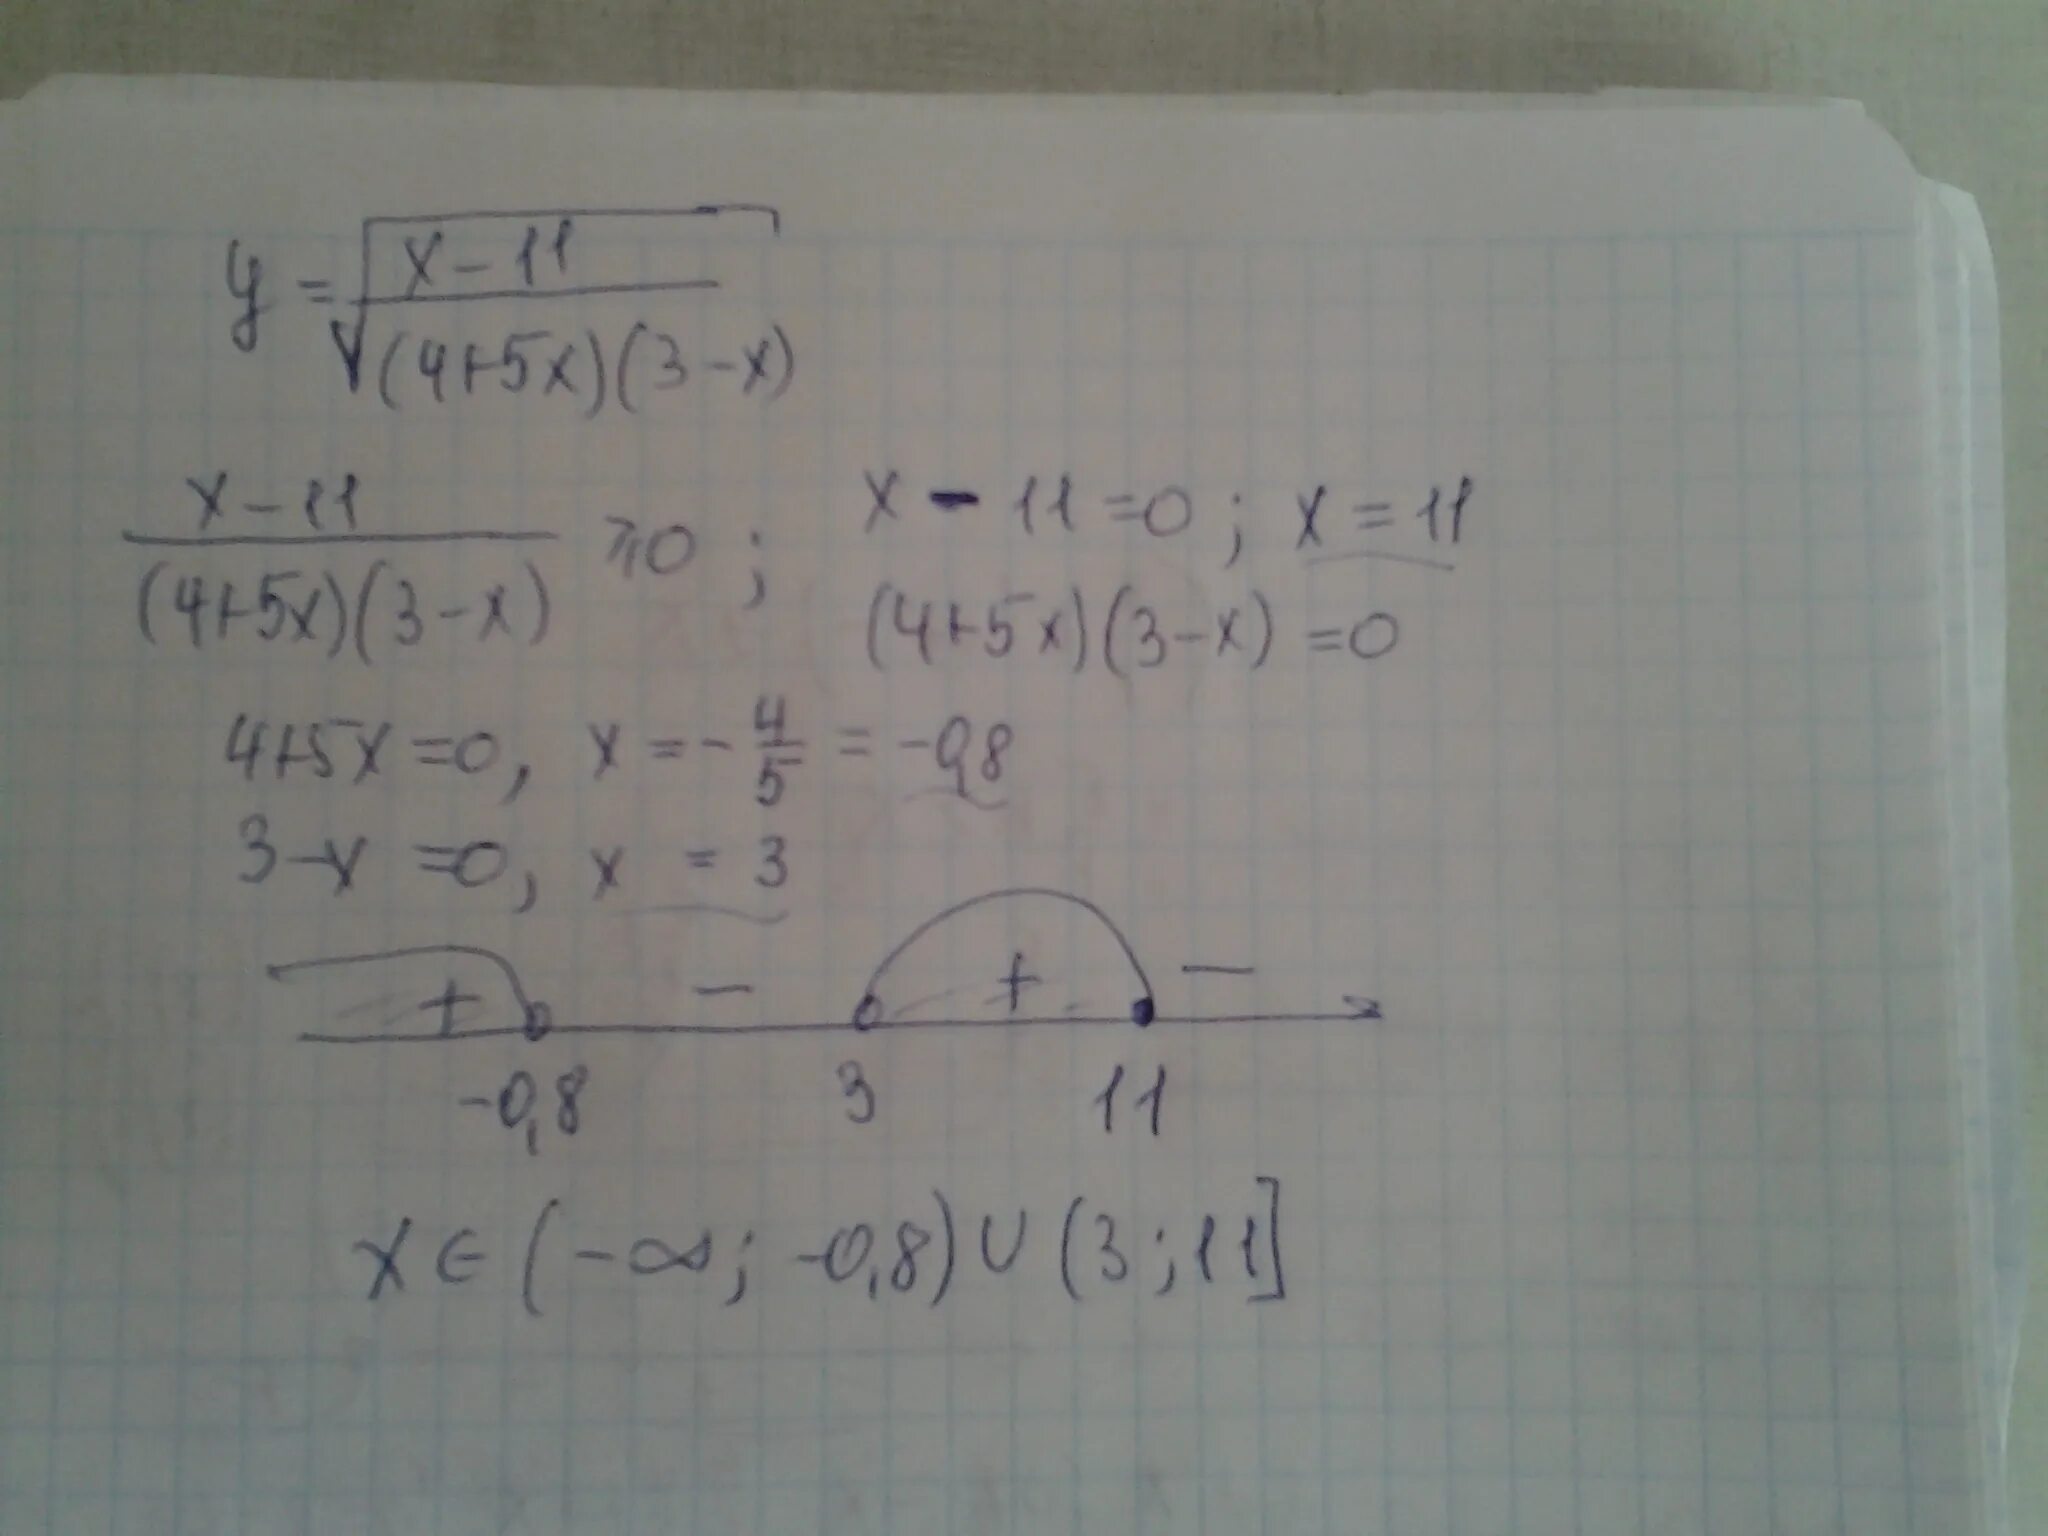 y = √((x-11)/((4+5x)(3-x)))
(x-11)/((4+5x)(3-x)) ⩾ 0 ; x - 11 = 0 ; x = 11
(4+5x)(3-x) = 0
4+5x = 0, x = -4/5 = -0,8
3-x = 0, x = 3
+ - + -
-0,8 3 11
x ∈ (-∞; -0,8) ∪ (3; 11]